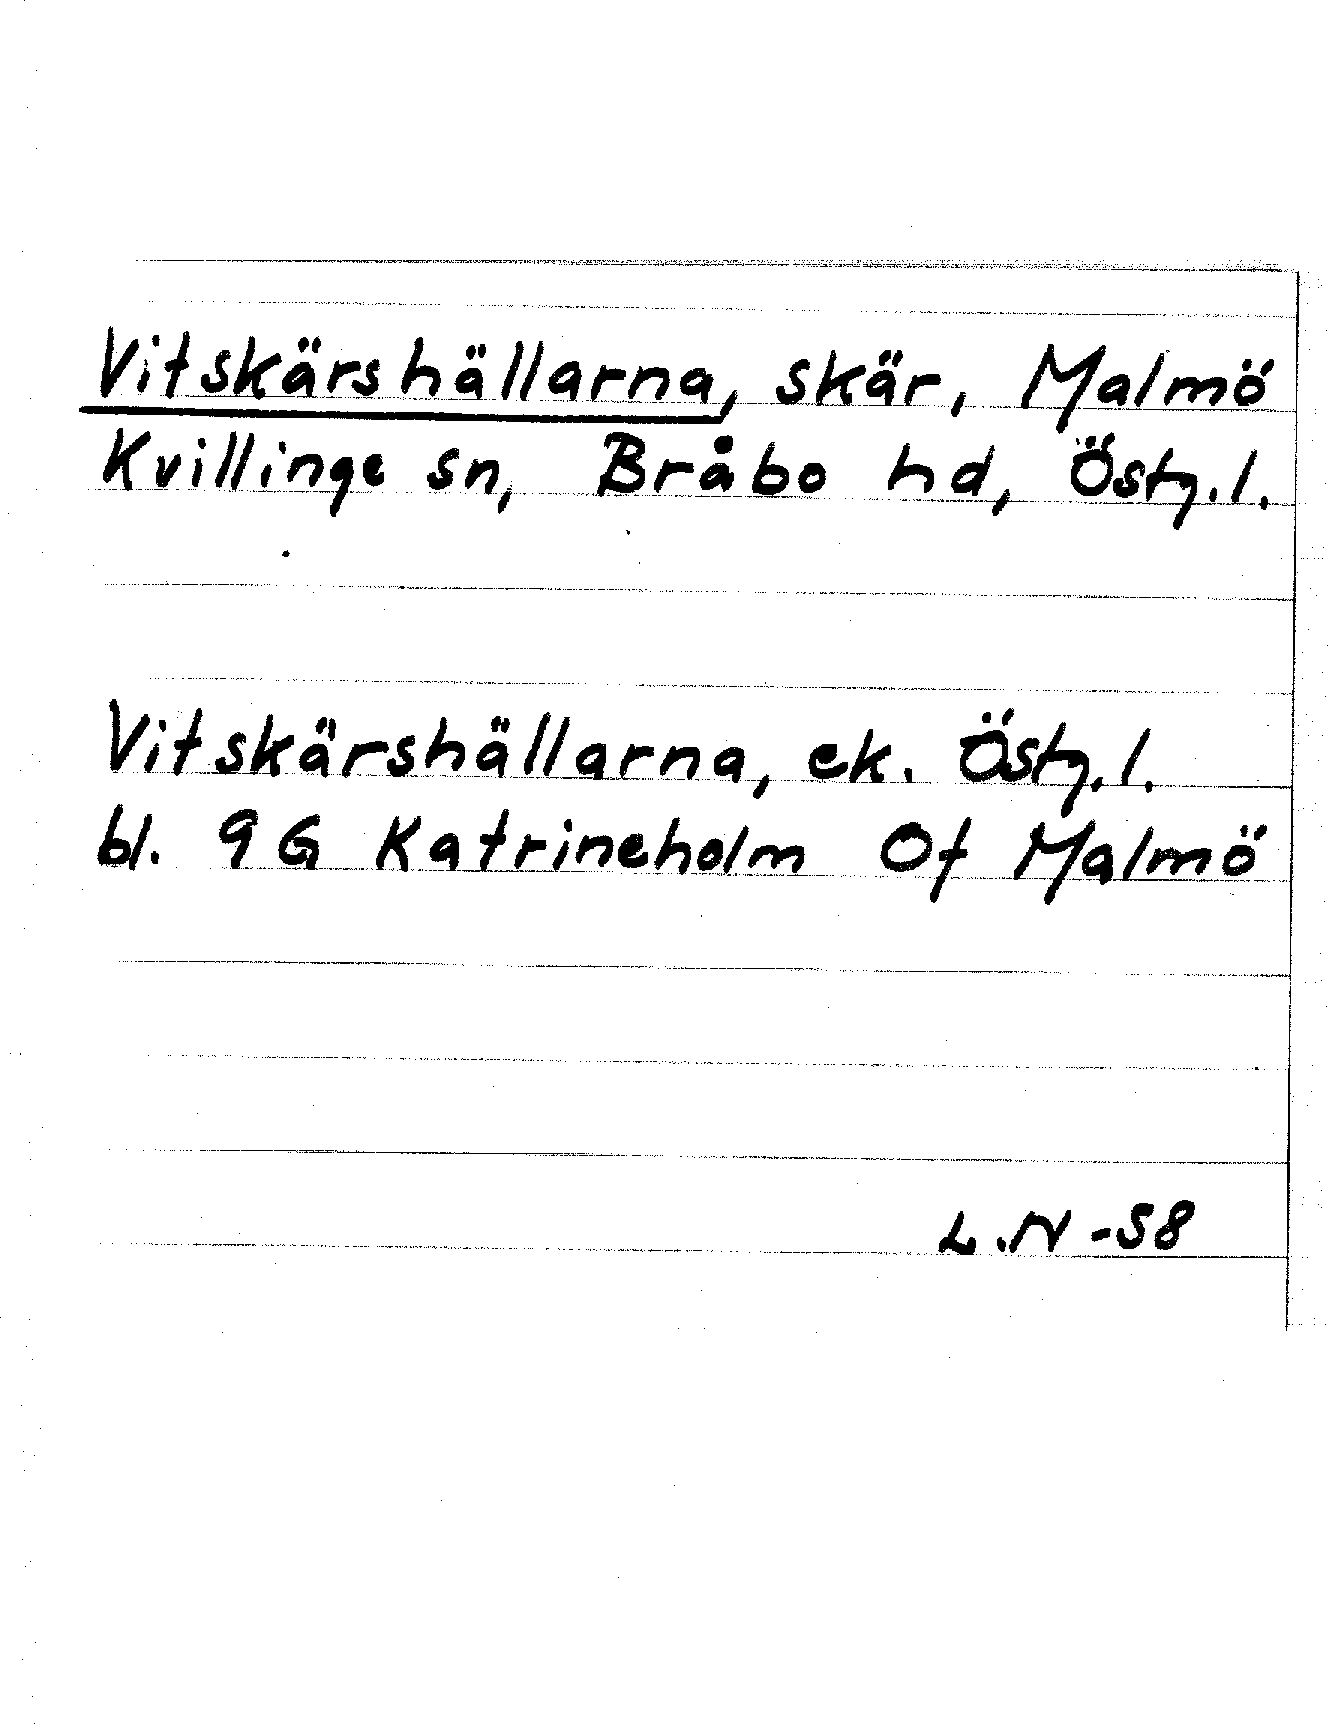 Vitskärshällarna, skär, Malmö
Kvillinge sn, Bråbo hd, Östg.l.
Vitskärshällarna, ek. Östg.l.
bl. 9G Katrineholm Of Malmö
L.N -58